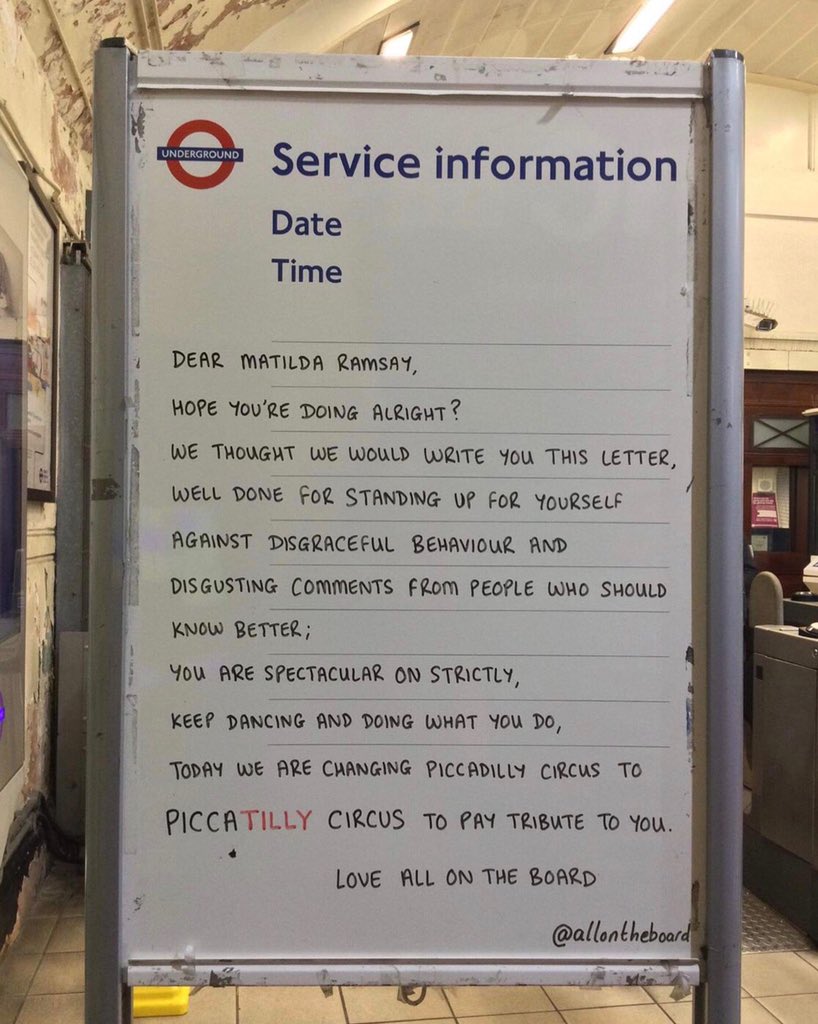 UNDERGROUND
Service information
Date
Time
DEAR MATILDA RAMSAY,
HOPE YOU'RE DOING ALRIGHT?
WE THOUGHT WE WOULD WRITE YOU THIS LETTER,
WELL DONE FOR STANDING UP FOR YOURSELF
AGAINST DISGRACEFUL BEHAVIOUR AND
DISGUSTING COMMENTS FROM PEOPLE WHO SHOULD
KNOW BETTER;
YOU ARE SPECTACULAR ON STRICTLY,
KEEP DANCING AND DOING WHAT YOU DO,
TODAY WE ARE CHANGING PICCADILLY CIRCUS TO
PICCATILLY CIRCUS TO PAY TRIBUTE TO YOU.
LOVE ALL ON THE BOARD
@allontheboard